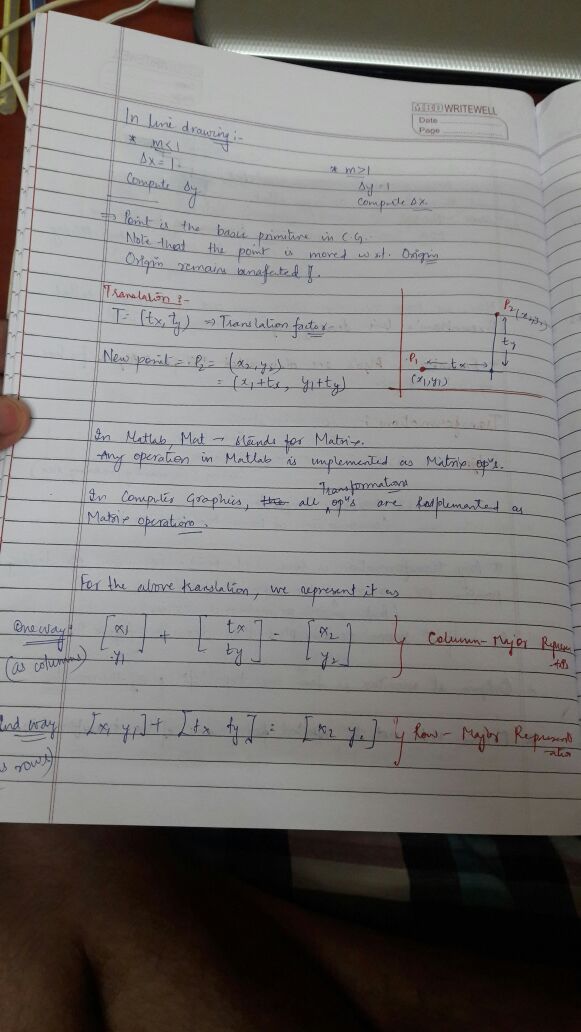 MICRO WRITEWELL
Date
Page
In line drawing :-
* m<1
Δx = 1.
Compute Δy
* m>1
Δy = 1
Compute Δx.
⇒ Point is the basic primitive in C G.
Note that the point is moved w.r.t. Origin
Origin remains unafated !.
Translation :-
T = (tx, ty) ⇒ Translation factor
New point = P2 = (x2, y2)
= (x1+tx, y1+ty)
P2 (x2, y2)
ty
P1
tx
(x1, y1)
In Matlab, Mat → stands for Matrix.
Any operation in Matlab is implemented as Matrix opn's.
Transformations
In Computer Graphics, all opn's are implemented as
Matrix operations.
For the above translation, we represent it as
One way:
(as columns)
[x1 y1] + [tx ty] = [x2 y2]
Column-Major Represen
tatn
2nd way
s rows)
[x1 y1] + [tx ty] = [x2 y2]
Row - Major Represent
ation